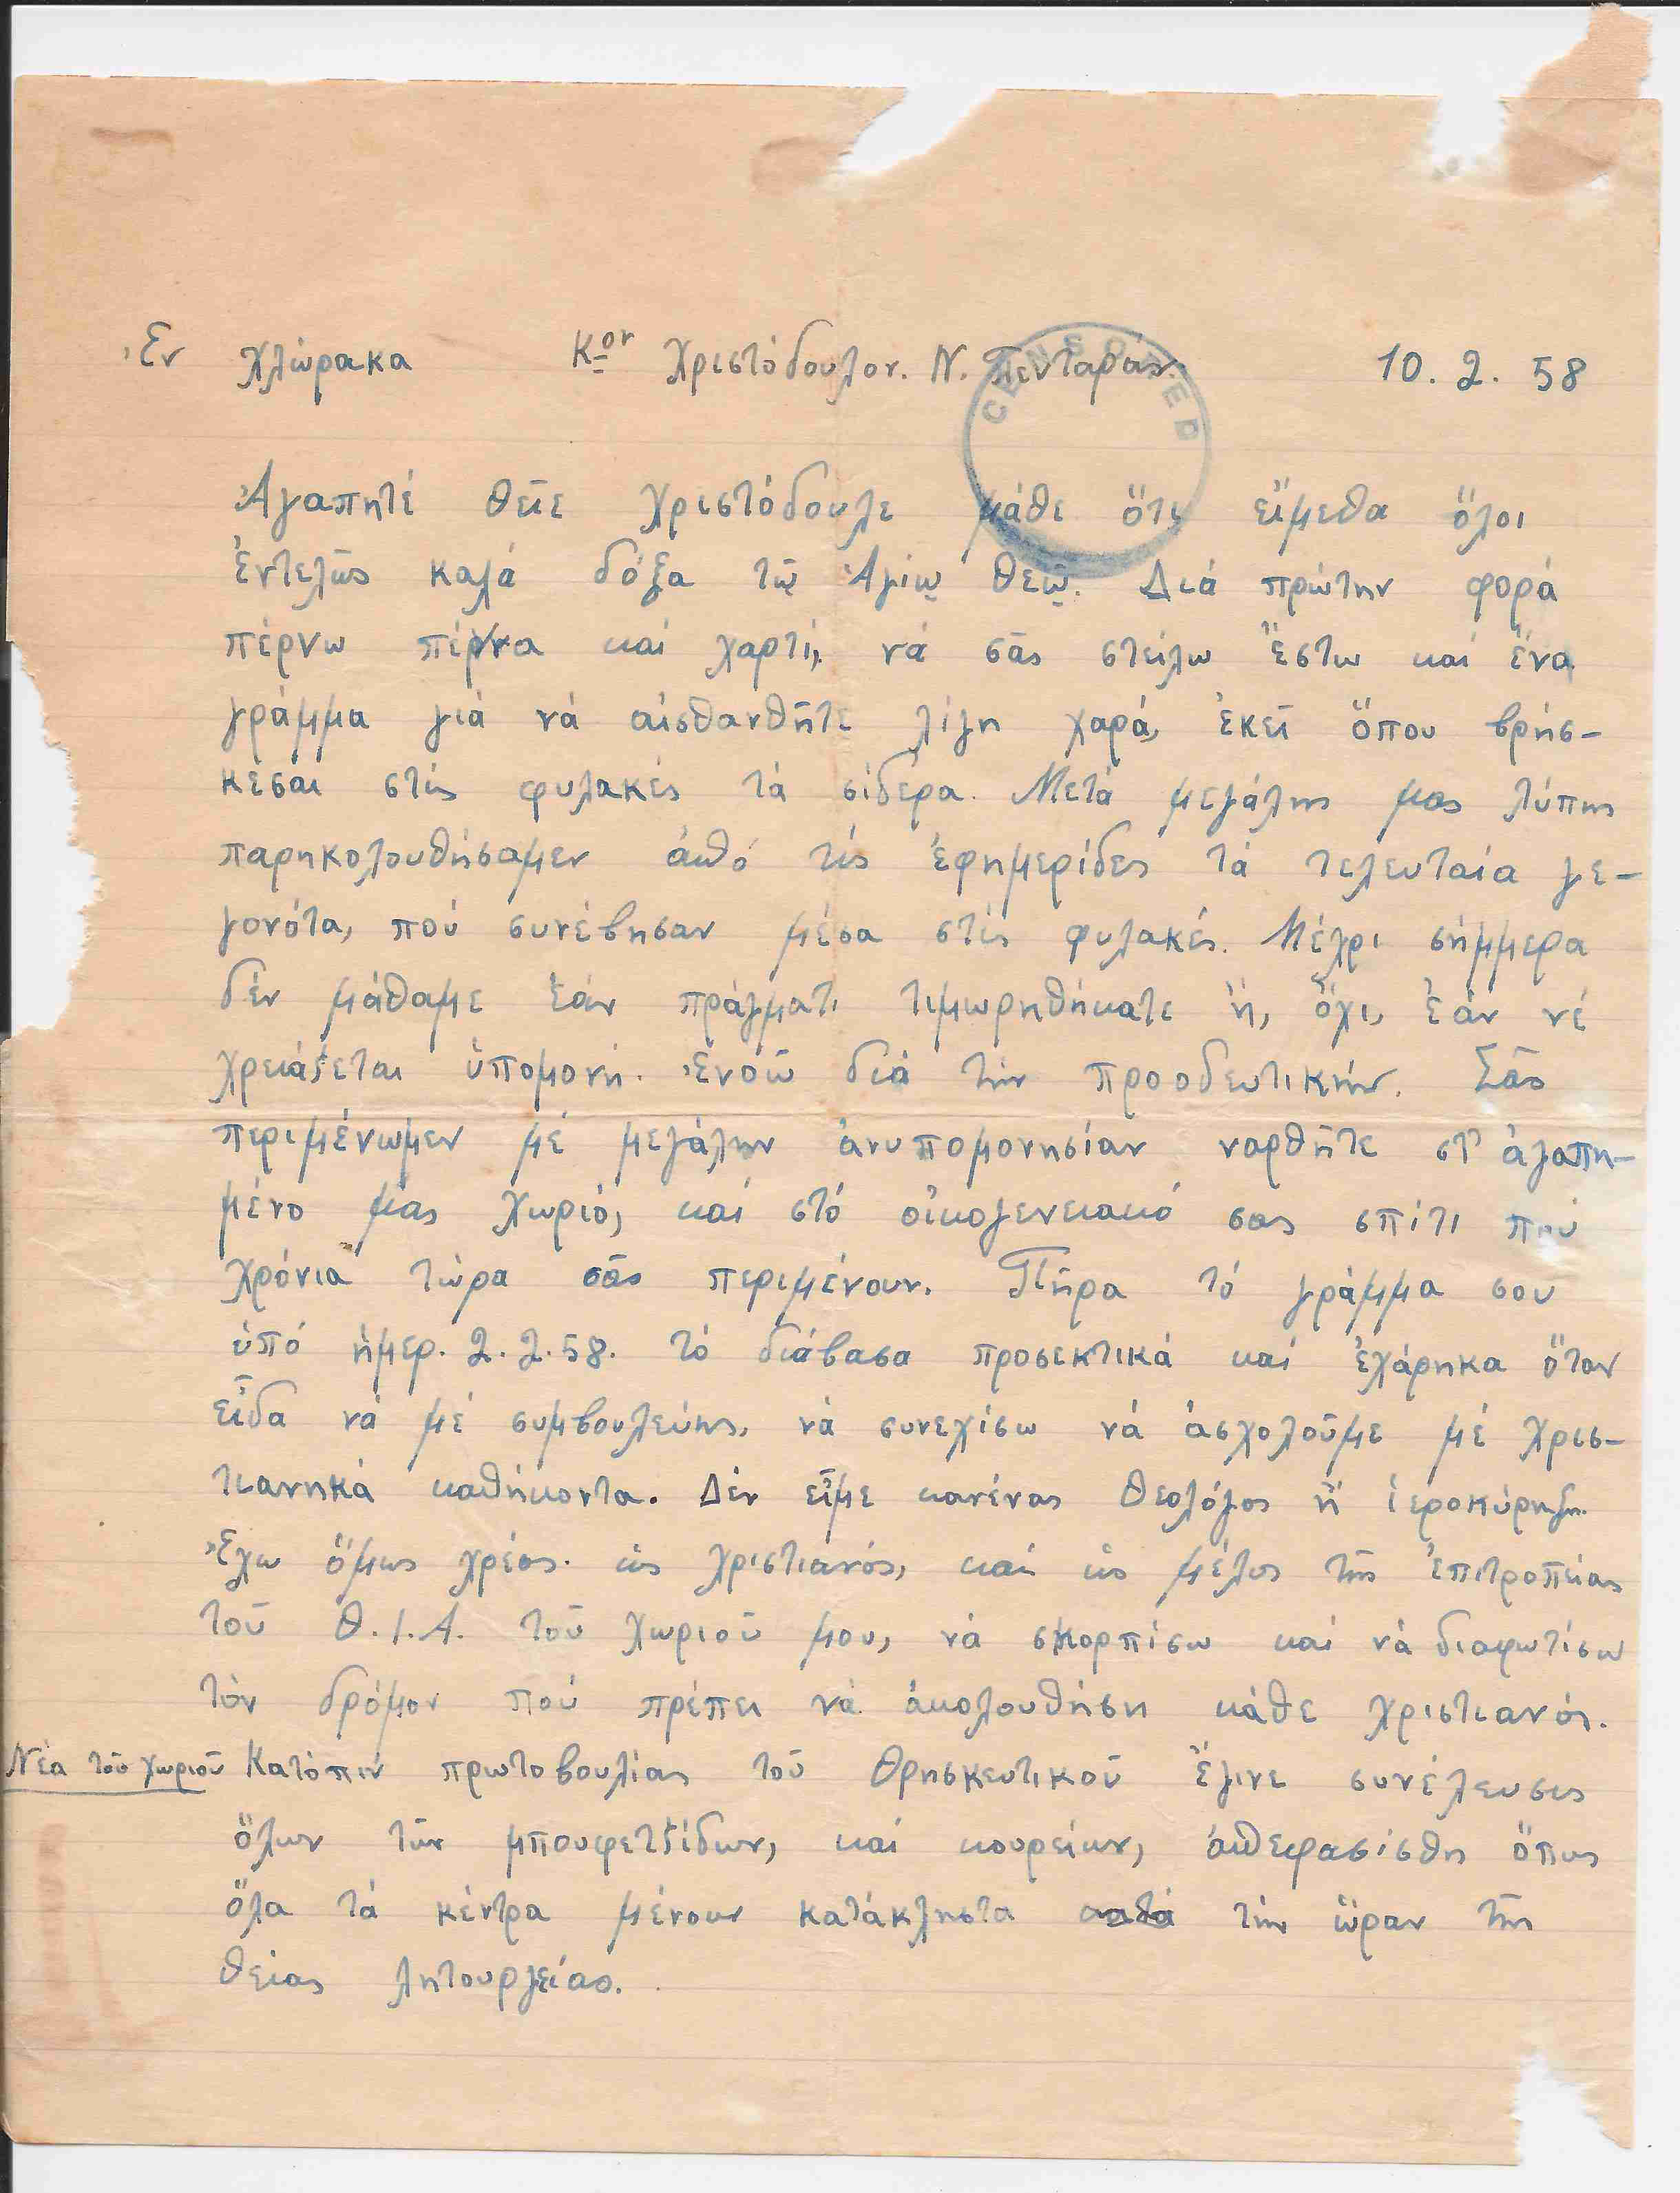 Ἐν Χλώρακα Κον Χριστόδουλον. Ν. Πενταράν. 10. 2. 58
CENSORED
Ἀγαπητέ θεῖε Χριστόδουλε μάθε ὅτι εἴμεθα ὅλοι
ἐντελῶς καλά δόξα τῷ Ἁγίῳ Θεῷ. Διά πρώτην φορά
πέρνω πέννα καί χαρτί, νά σᾶς στείλω ἔστω καί ἕνα
γράμμα γιά νά αἰσθανθῆτε λίγη χαρά, ἐκεῖ ὅπου βρήσ-
κεσαι στίς φυλακές τά σίδερα. Μετά μεγάλης μας λύπης
παρηκολουθήσαμεν ἀπό τίς ἐφημερίδες τά τελευταία γε-
γονότα, πού συνέβησαν μέσα στίς φυλακές. Μέχρι σήμμερα
δέν μάθαμε ἐάν πράγματι τιμωρηθήκατε ἤ, ὄχι, ἐάν νέ
χρειάζεται ὑπομονή. Ἐνοῶ διά τήν προοδευτικήν. Σᾶς
περιμένωμεν μέ μεγάλην ἀνυπομονησίαν ναρθῆτε στ' ἀγαπη-
μένο μας χωριό, καί στό οἰκογενειακό σας σπίτι πού
χρόνια τώρα σᾶς περιμένουν. Πῆρα τό γράμμα σου
ὑπό ἡμερ. 2. 2. 58. τό διάβασα προσεκτικά καί ἐχάρηκα ὅταν
εἶδα νά μέ συμβουλεύης, νά συνεχίσω νά ἀσχολοῦμε μέ χρισ-
τιανηκά καθήκοντα. Δέν εἶμε κανένας Θεολόγος ἤ ἱεροκύρηξ.
Ἔχω ὅμως χρέος. ὡς χριστιανός, καί ὡς μέλος τῆς ἐπιτροπείας
τοῦ Θ.Ι.Α. τοῦ χωριοῦ μου, νά σκορπίσω καί νά διαφωτίσω
τόν δρόμον πού πρέπει νά ἀκολουθήση κάθε χριστιανός.
Νέα τοῦ χωριοῦ Κατόπιν πρωτοβουλίας τοῦ Θρησκευτικοῦ ἔγινε συνέλευσις
ὅλων τῶν μπουφετζίδων, καί κουρείων, ἀπεφασίσθη ὅπως
ὅλα τά κέντρα μένουν κατάκληστα κατά τήν ὥραν τῆς
θείας λητουργείας.